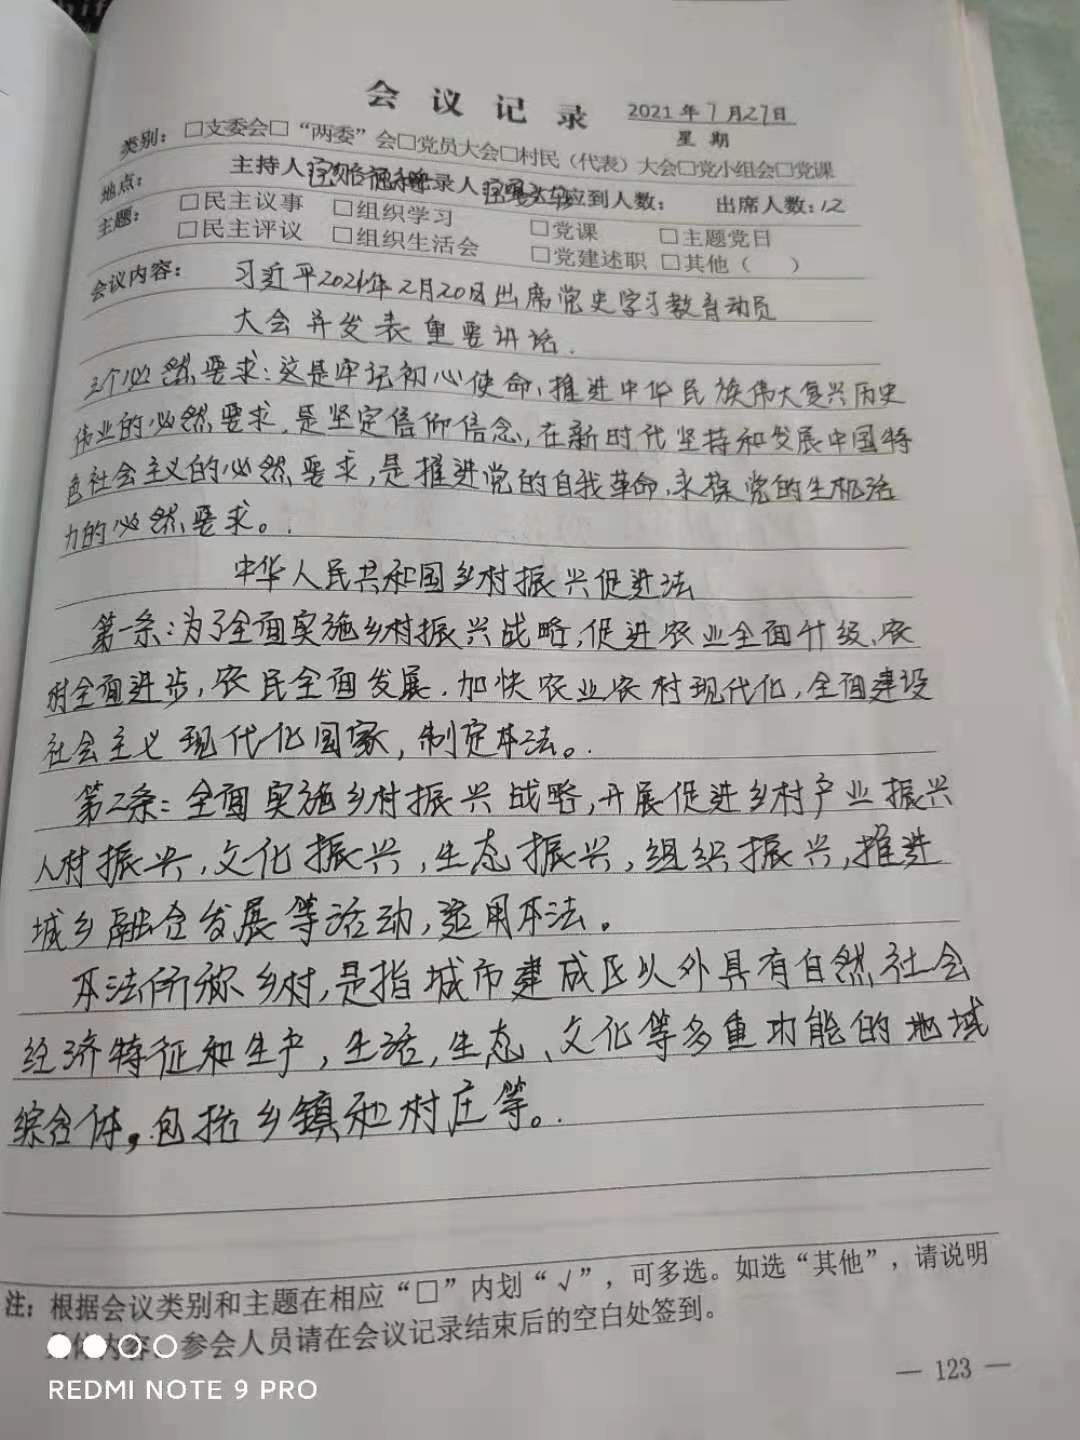 会议记录 2021年7月27日
星期
类别：□支委会□“两委”会□党员大会□村民（代表）大会□党小组会□党课
地点： 主持人 录人 应到人数： 出席人数：12
主题： □民主议事 □组织学习 □党课 □主题党日
□民主评议 □组织生活会 □党建述职 □其他（ ）
会议内容： 习近平2021年2月20日出席党史学习教育动员
大会并发表重要讲话.
三个必然要求：这是牢记初心使命、推进中华民族伟大复兴历史
伟业的必然要求，是坚定信仰信念，在新时代坚持和发展中国特
色社会主义的必然要求，是推进党的自我革命、永葆党的生机活
力的必然要求。.
中华人民共和国乡村振兴促进法
第一条：为了全面实施乡村振兴战略，促进农业全面升级、农
村全面进步，农民全面发展，加快农业农村现代化，全面建设
社会主义现代化国家，制定本法。.
第二条：全面实施乡村振兴战略，开展促进乡村产业振兴
人材振兴，文化振兴，生态振兴，组织振兴，推进
城乡融合发展等活动，适用本法。
本法所称乡村，是指城市建成区以外具有自然社会
经济特征和生产，生活，生态、文化等多重功能的地域
综合体，包括乡镇和村庄等。.
注：根据会议类别和主题在相应“□”内划“√”，可多选。如选“其他”，请说明
具体内容。参会人员请在会议记录结束后的空白处签到。
REDMI NOTE 9 PRO
— 123 —